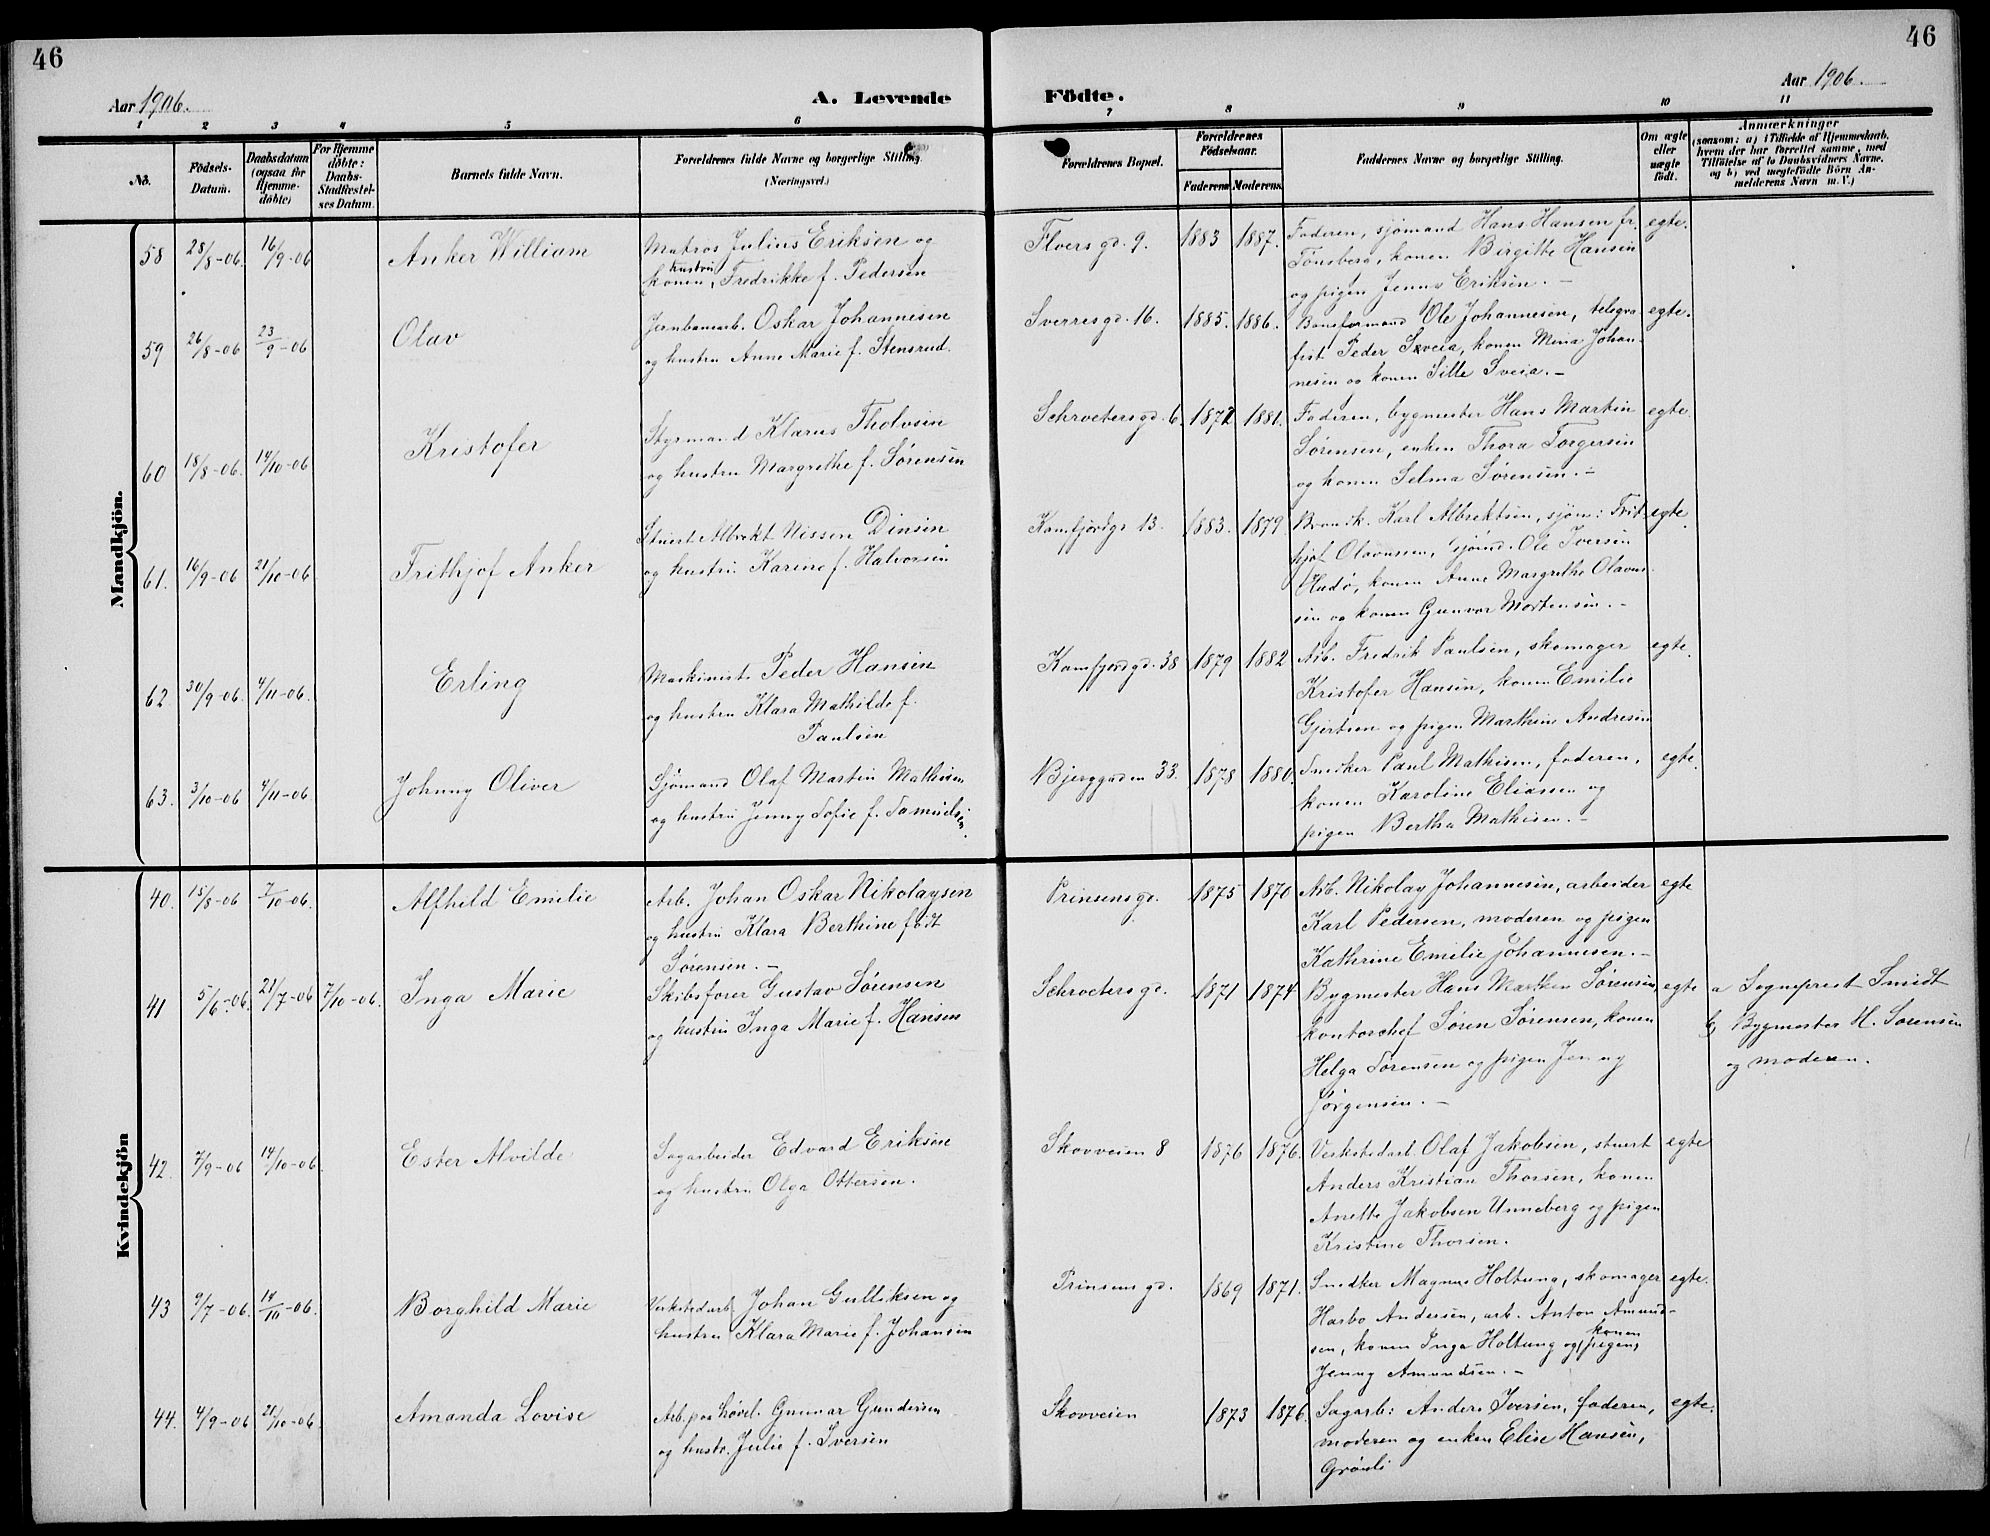 46
46
Aar 1906.
A. Levende
Födte.
Aar 1906.
1
2
3
4
5
6
7
8
9
10
11
No.
Födsels-
Datum.
Daabsdatum
(ogsaa for
Hjemme-
döbte)
For Hjemme
döbte:
Daabs-
Stadfæstel-
ses Datum.
Barnets fulde Navn.
Forældrenes fulde Navne og borgerlige Stilling.
(Næringsvei.)
Forældrenes Bopæl.
Forældrenes
Födselsaar.
Faderens
Moderens.
Faddernes Navne og borgerlige Stilling.
Om ægte
eller
uægte
födt.
Anmærkninger
(saasom: a) i Tilfælde af Hjemmedaab,
hvem der har forrettet samme, med
Tilföielse af to Daabsvidners Navne.
og b) ved uægtefödte Börn An-
melderens Navn m. V.)
Mandkjön.
58
28/8-06.
16/9-06
Anker William
Matros Julius Eriksen og
hustru
konen, Fredrikke f. Pedersen
Flors gd. 9.
1883
1887.
Faderen, sjömand Hans Hansen fr.
Tönsberg, konen Birgitte Hansen
og pigen Jenny Eriksen. -
egte.
59
26/8-06
23/9-06
Olav
Jernbanearb. Oskar Johannesen
og hustru Anne Marie f. Stensrud.
Sverresgd. 16.
1885.
1886.
Baneformand Ole Johannesen, telegra
fist Peder Sveia, konen Mina Johan-
nesen og konen Sille Sveia. -
egte.
60
18/8-06.
14/10-06
Kristofer
Styrmand Klarus Tholvsen
og hustru Margrethe f. Sørensen
Schrøetersgd. 6.
1872
1881.
Faderen, bygmester Hans Martin
Sørensen, enken Thora Torgersen
og konen Selma Sørensen. -
egte.
61.
16/9-06
21/10-06.
Frithjof Anker
Stuert Albrekt Nissen Dinsen
og hustru Karine f. Halvorsen
Kamfjordgd 13.
1883.
1879.
Karl Albrektsen, sjöm: Frit
hjof Olavusen, sjömd. Ole Iversen
Hudø, konen Anne Margrethe Olavu-
sen og konen Gunvor Mortensen. -
egte.
62
30/9-06.
4/11-06.
Erling
Maskinist Peder Hansen
og hustru Klara Mathilde f.
Paulsen
Kamfjordgd. 38
1879
1882
Arb. Fredrik Paulsen, skomager
Kristofer Hansen, konen Emilie
Gjertsen og pigen Marthine Andresen
egte.
63.
3/10-06
4/11-06.
Johnny Oliver
Sjømand Olaf Martin Mathisen
og hustru Jenny Sofie f. Samuelsen.
Bjerggaden 33.
1878
1880.
Snedker Paul Mathisen, faderen,
konen Karoline Eliassen og
pigen Bertha Mathisen. -
egte.
Kvindekjön
40.
15/8-06
7/10-06.
Alfhild Emilie
Arb. Johan Oskar Nikolaysen
og hustru Klara Berthine födt
Sørensen. -
Prinsensgd.
1875
1870
Arb. Nikolay Johannesen, arbeider
Karl Pedersen, moderen og pigen
Kathrine Emilie Johannesen. -
egte
41
5/6-06.
21/7-06
7/10-06.
Inga Marie
Skibsfører Gustav Sørensen
og hustru Inga Marie f. Hansen
Schrøetersgd.
1871
1874.
Bygmester Hans Martin Sørensen,
kontorchef Søren Sørensen, konen
Helga Sørensen og pigen Jenny
Jørgensen. -
egte
a Sogneprest Smidt
b, Bygmester H. Sørensen
og moderen.
42.
7/9-06
14/10-06.
Ester Alvilde
Sagarbeider Edvard Eriksen
og hustru Olga Ottersen.
Skovveien 8
1876
1876.
Verkstedarb. Olaf Jakobsen, stuert
Anders Kristian Thorsen, konen
Anette Jakobsen Unneberg og pigen
Kristine Thorsen.
egte
43
9/7-06.
14/10-06.
Borghild Marie
Verkstedarb. Johan Gulliksen og
hustru Klara Marie f. Johansen
Prinsensgd.
1869
1871.
Snedker Magnus Holtung, skomager
Harbo Andersen, arb. Anton Amund-
sen, konen Inga Holtung og konen
(pigen)
Jenny Amundsen. -
egte.
44.
4/9-06
21/10-06.
Amanda Lovise
Arb. paa høvel. Gunnar Gundersen
og hustr. Julie f. Iversen
Skovveien
1873
1876.
Sagarb: Anders Iversen, faderen,
moderen og enken Elise Hansen,
Grønli
egte.